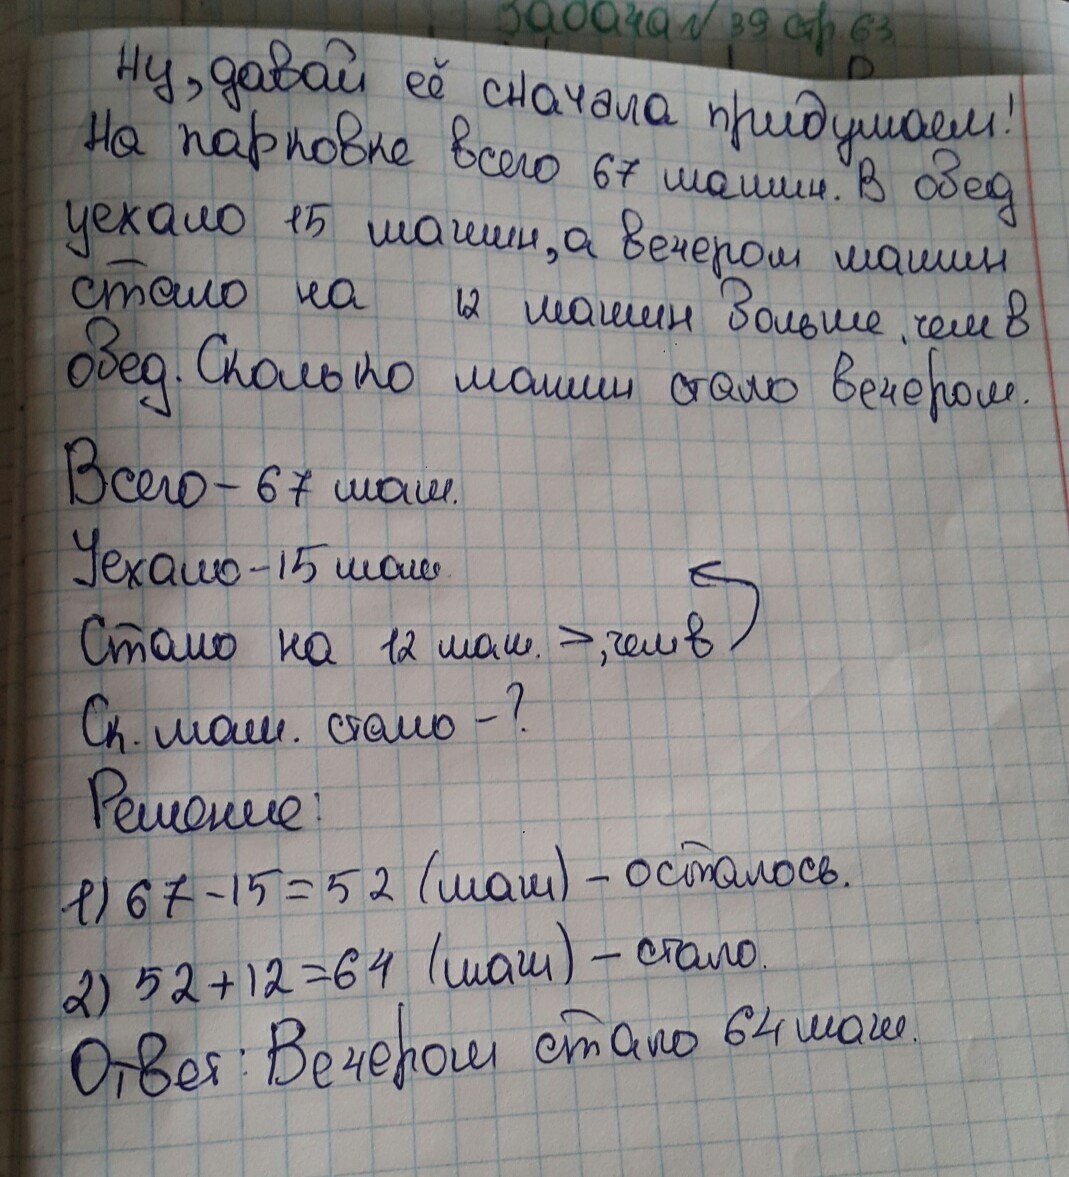 Задача № 39 стр 63
Ну, давай её сначала придумаем!
На парковке всего 67 машин. В обед
уехало 15 машин, а вечером машин
стало на 12 машин больше, чем в
обед. Сколько машин стало вечером.
Всего - 67 маш.
Уехало - 15 маш.
Стало на 12 маш. >, чем в
Ск. маш. стало - ?
Решение:
1) 67 - 15 = 52 (маш) - осталось.
2) 52 + 12 = 64 (маш) - стало.
Ответ: Вечером стало 64 маш.